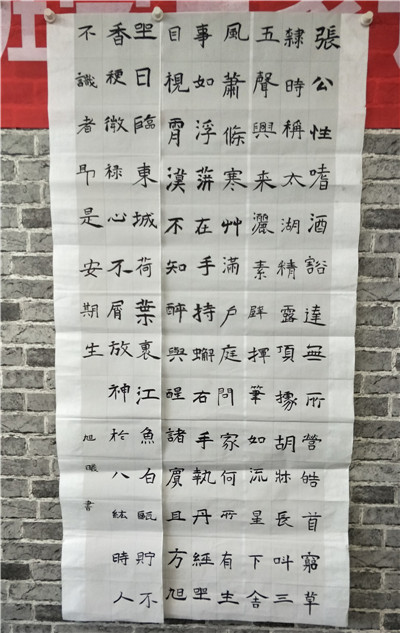 張公性嗜酒豁達無所營皓首窮草
隸時稱太湖精露頂據胡牀長叫三
五聲興来灑素壁揮筆如流星下舍
風蕭條寒艸滿户庭問家何所有生
事如浮蓱在手持蠏右手執丹經
目視霄漢不知醉與醒諸賓且方旭
日臨東城荷葉裹江魚白甌貯不
香粳微禄心不屑放神於八紘時人
不識者即是安期生
旭曦書